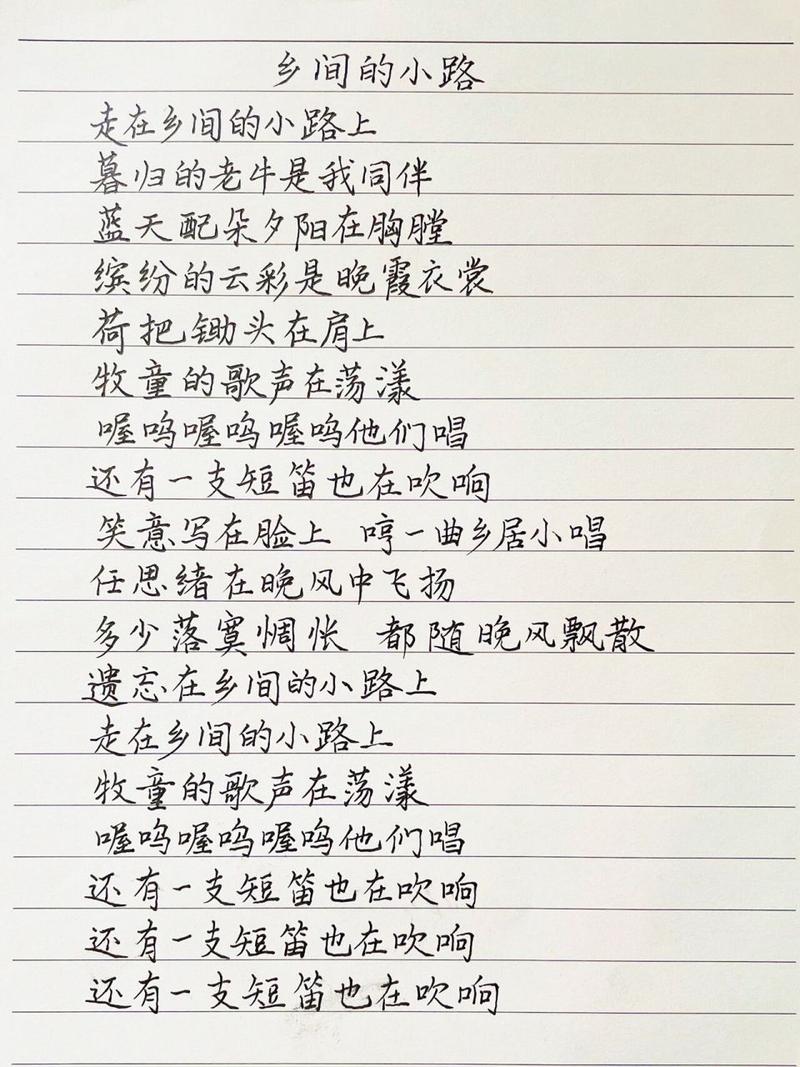 乡间的小路
走在乡间的小路上
暮归的老牛是我同伴
蓝天配朵夕阳在胸膛
缤纷的云彩是晚霞衣裳
荷把锄头在肩上
牧童的歌声在荡漾
喔呜喔呜喔呜他们唱
还有一支短笛也在吹响
笑意写在脸上 哼一曲乡居小唱
任思绪在晚风中飞扬
多少落寞惆怅 都随晚风飘散
遗忘在乡间的小路上
走在乡间的小路上
牧童的歌声在荡漾
喔呜喔呜喔呜他们唱
还有一支短笛也在吹响
还有一支短笛也在吹响
还有一支短笛也在吹响